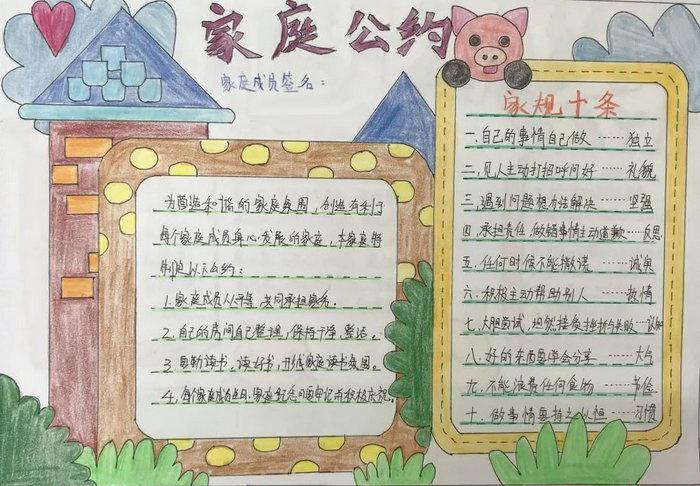 家庭公约
家庭成员签名：
为营造和谐的家庭氛围，创造有利于
每个家庭成员身心发展的家庭，本家庭特
制定以下公约：
1. 家庭成员人人平等，共同承担家务。
2. 自己的房间自己整理，保持干净、整洁。
3. 勤读书，读好书，开展家庭读书氛围。
4. 每个家庭成员生日、家庭纪念日要牢记而积极庆祝。
家规十条
一、自己的事情自己做……独立
二、见人主动打招呼问好……礼貌
三、遇到问题想办法解决……坚强
四、承担责任 做错事情主动道歉……反思
五、任何时候不能撒谎……诚实
六、积极主动帮助别人……热情
七、大胆尝试，坦然接受挫折与失败……认知
八、好的东西要学会分享……大气
九、不能浪费任何食物……节俭
十、做事情要持之以恒……习惯